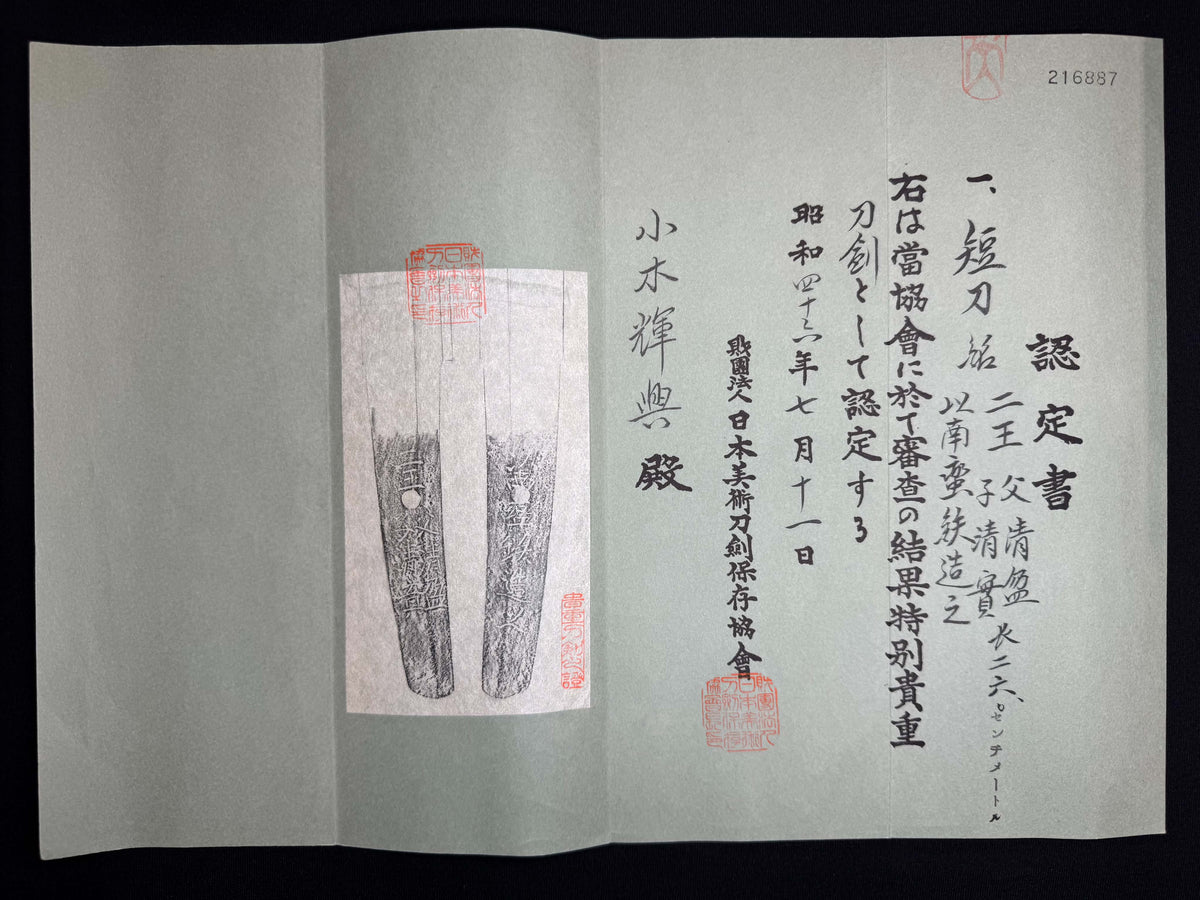 216887
認定書
一、短刀 銘 二王 父清盈
子清實 長二六、〇センチメートル
以南蛮鉄造之
右は當協會に於て審査の結果特別貴重
刀劍として認定する
昭和四十六年七月十一日
財團法人日本美術刀劍保存協會
小木輝興殿